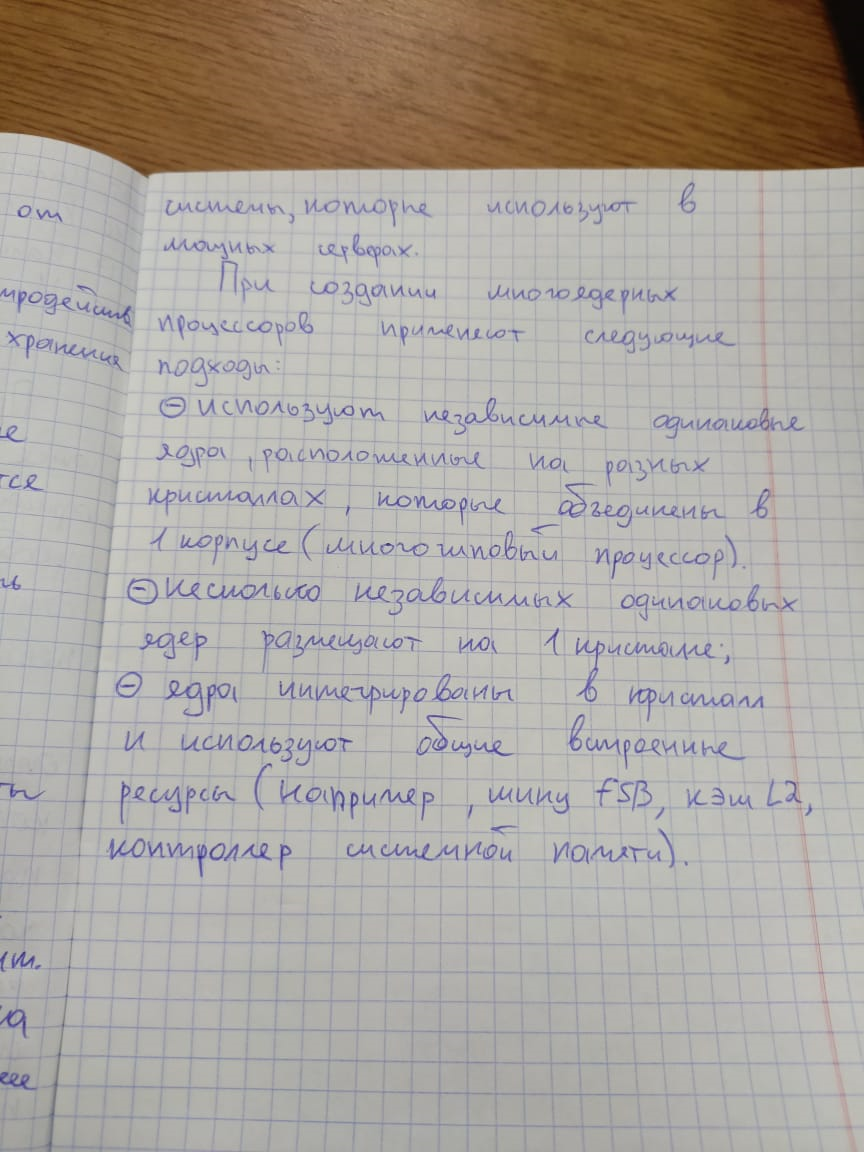 системы, которые используют в
мощных серверах.
При создании многоядерных
процессоров применяют следующие
подходы:
⊖ используют независимые одинаковые
ядра, расположенные на разных
кристаллах, которые объединены в
1 корпусе (многочиповый процессор).
⊖ несколько независимых одинаковых
ядер размещают на 1 кристалле;
⊖ ядра интегрированы в кристалл
и используют общие встроенные
ресурсы (например, шину FSB, кэш L2,
контроллер системной памяти).
от
хранения